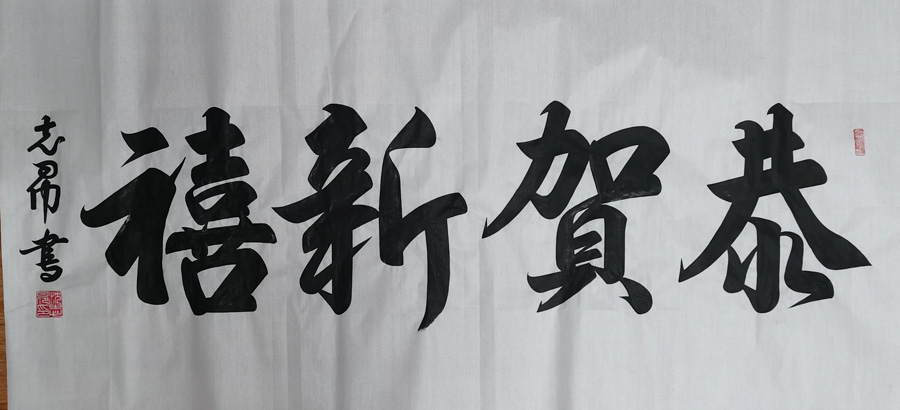 恭賀新禧
志昂書